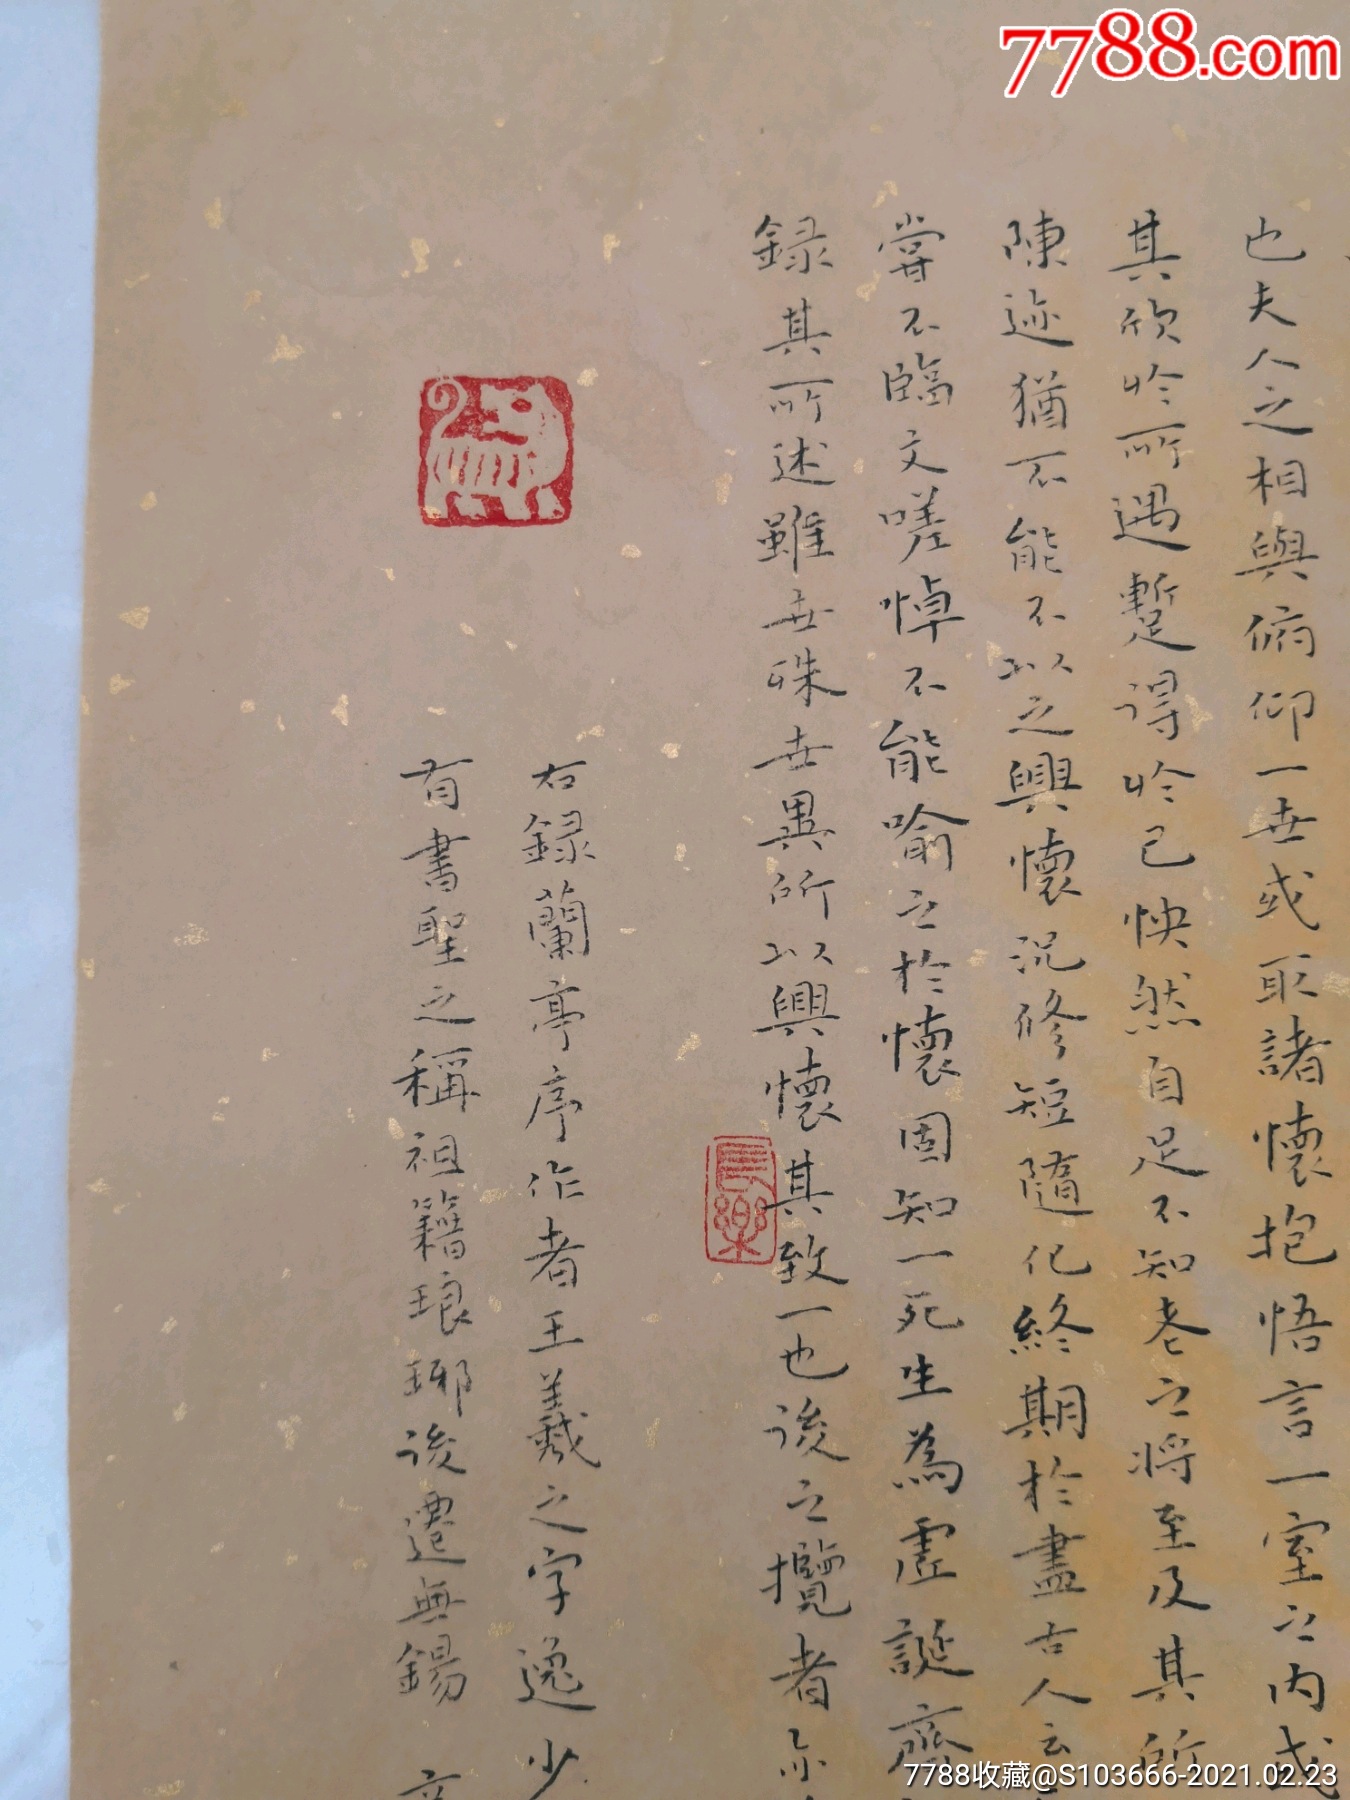 7788.com
也夫人之相與俯仰一世或取諸懷抱悟言一室之内或
其欣於所遇暫得於己怏然自足不知老之將至及其所
陳迹猶不能不以之興懷況修短隨化終期於盡古人云
嘗不臨文嗟悼不能喻之於懷固知一死生為虛誕齊
録其所述雖世殊世異所以興懷其致一也後之攬者亦
長樂
右録蘭亭序作者王羲之字逸少
有書聖之稱祖籍琅琊後遷無錫
7788收藏@S103666-2021.02.23